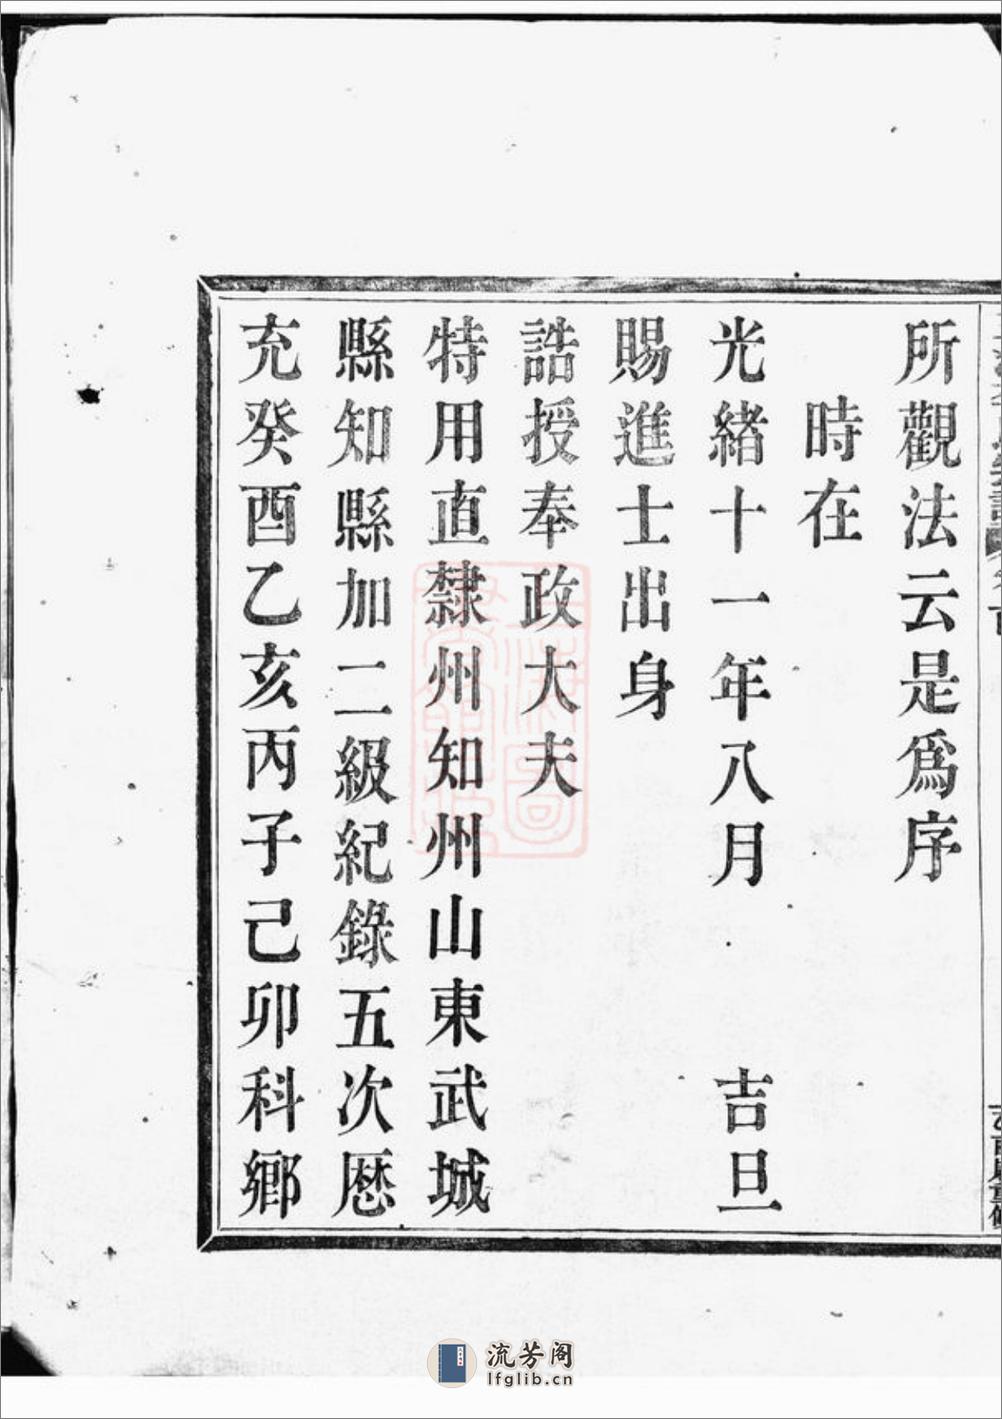 所觀法云是爲序
時在
光緒十一年八月 吉旦
賜進士出身
誥授奉政大夫
特用直隸州知州山東武城
縣知縣加二級紀錄五次歷
充癸酉乙亥丙子己卯科鄉
流芳阁
lfglib.cn